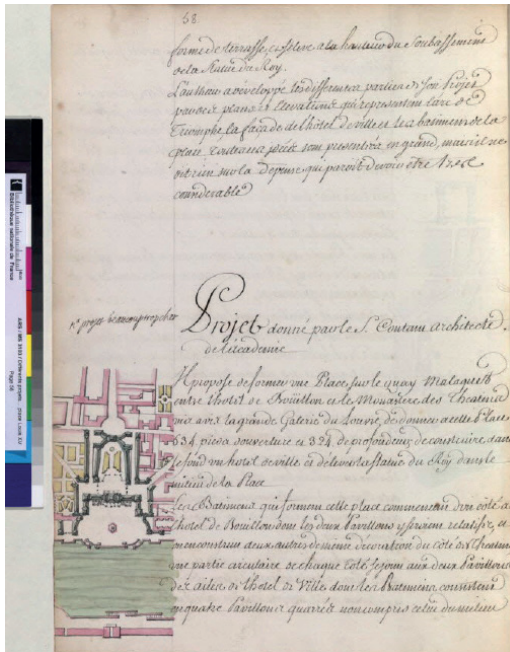 58.
forme de terrasse, et s'eleve a la hauteur du soubassement
de la Statue du Roy.
L'autheur a developpé les differentes parties de son Projet
par des plans et Elevations qui representent l'arc de
Triomphe, la façade de l'hotel de ville et les batimens de la
place. Toutes ces pieces sont presentées en grand, mais il ne
dit rien sur la depense qui paroit devoir être tres
considerable
Projet donné par le Sr. Contant architecte
de l'Academie
Il propose de former une Place sur le quay Malaquest
entre l'hotel de Boüillon et le Monastere des Theatins
vis a vis la grande Galerie du Louvre, de donner a cette Place
634. pieds d'ouverture et 324. de profondeur de construire dans
le fond un hotel de ville et d'elever la statue du Roy dans le
milieu de la Place
Les Batimens qui forment cette place commencent d'un côté a
l'hotel de Boüillon dont les deux Pavillons y seroient relatifs, et
on en construit deux autres de meme decoration du côté des Theatins
une partie circulaire de chaque côté se joint aux deux Pavillons
des ailes de l'hotel de Ville dont les Batimens consistent
en quatre Pavillons quarrés non compris celui du milieu
Bibliothèque nationale de France